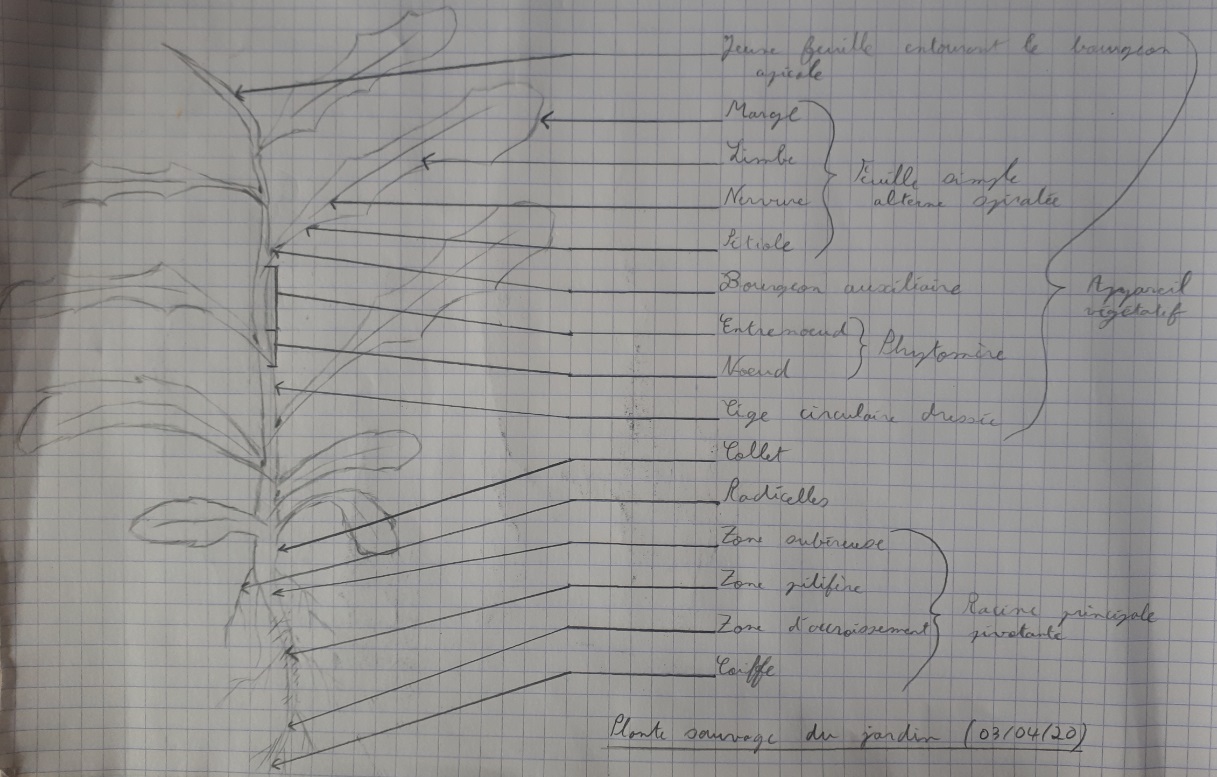 Jeune feuille entourant le bourgeon
apicale
Marge
Limbe
Nervure
Pétiole
Feuille simple
alterne spiralée
Bourgeon auxiliaire
Entrenoeud
Noeud
Phytomère
Tige circulaire dressée
Appareil
végétatif
Collet
Radicelles
Zone subéreuse
Zone pilifère
Zone d'accroissement
Coiffe
Racine principale
pivotante
Plante sauvage du jardin (03/04/20)